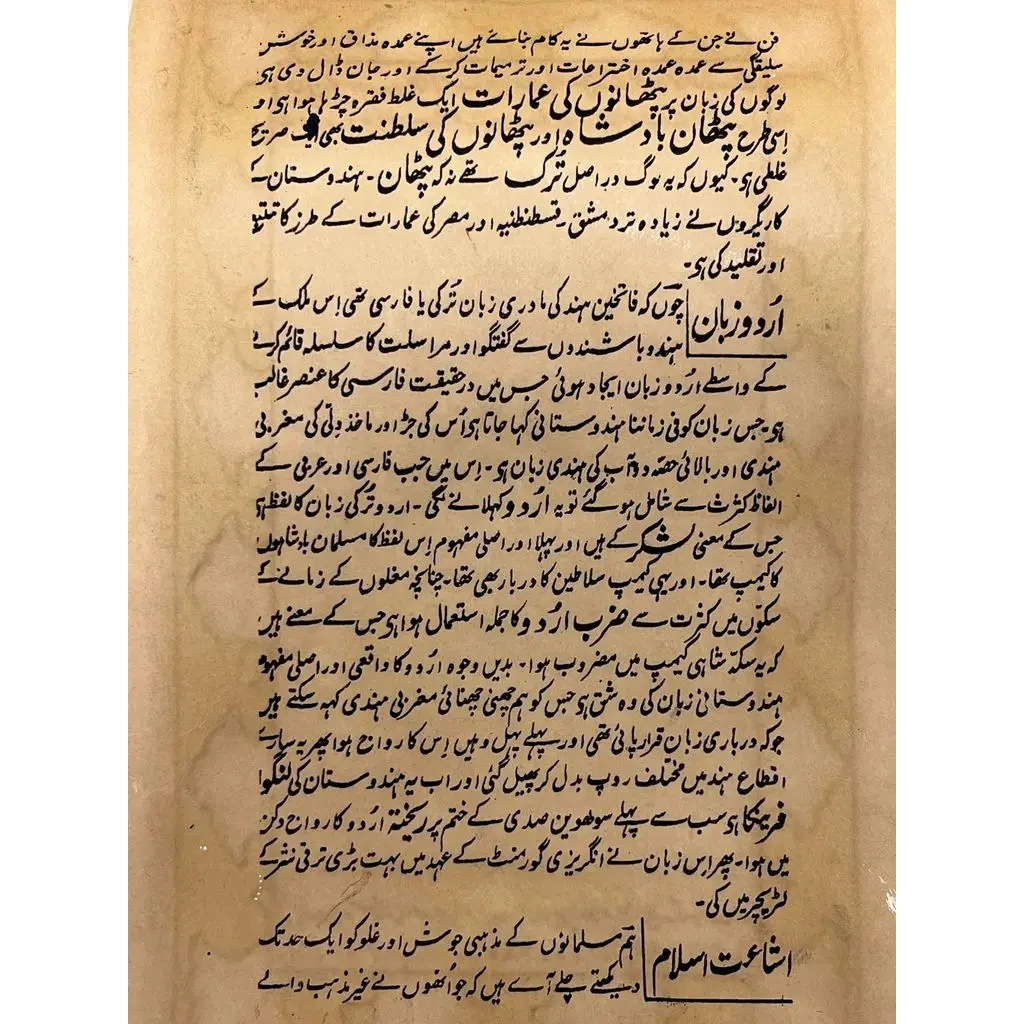 فن نے جن کے ہاتھوں نے یہ کام بنائے ہیں اپنے عمدہ مذاق اور خوش
سلیقگی سے عمدہ عمدہ اختراعات اور ترمیمات کرکے اور جان ڈال دی ہی
لوگوں کی زبان پر پٹھانوں کی عمارات ایک غلط فقرہ چڑہا ہوا ہی او
اِسی طرح پٹھان بادشاہ اور پٹھانوں کی سلطنت بھی ایک صریح
غلطی ہو۔ کیوں کہ یہ لوگ در اصل تُرک تھے نہ کہ پٹھان۔ ہندوستان کے
کاریگروں نے زیادہ تر دمشق۔ قسطنطنیہ اور مصر کی عمارات کے طرز کا تتبع
اور تقلید کی ہو۔
اُردو زبان
چوں کہ فاتحین ہند کی مادری زبان تُرکی یا فارسی تھی اِس ملک کے
ہندو باشندوں سے گفتگو اور مراسلت کا سلسلہ قائم کرنے
کے واسطے اُردو زبان ایجاد ہوئی جس میں درحقیقت فارسی کا عنصر غالب
ہو۔ جس زبان کو فی زماننا ہندوستانی کہا جاتا ہو اُس کی جڑ اور ماخذ دِلّی کی مغربی
ہندی اور بالائی حصّہ دوآب کی ہندی زبان ہو۔ اِس میں جب فارسی اور عربی کے
الفاظ کثرت سے شامل ہوگئے تو یہ اُردو کہلانے لگی۔ اردو تُرکی زبان کا لفظ ہی
جس کے معنی لشکر کے ہیں اور پہلا اور اصلی مفہوم اِس لفظ کا مسلمان بادشاہوں
کا کیمپ تھا۔ اور یہی کیمپ سلاطین کا دربار بھی تھا۔ چنانچہ مغلوں کے زمانے کے
سکّوں میں کثرت سے ضرب اُردو کا جملہ استعمال ہوا ہی جس کے معنے ہیں
کہ یہ سکّہ شاہی کیمپ میں مضروب ہوا۔ بدیں وجوہ اردو کا واقعی اور اصلی مفہوم
ہندوستانی زبان کی وہ شق ہو جس کو ہم چھنی چھنائی مغربی ہندی کہہ سکتے ہیں
جو کہ درباری زبان قرار پائی تھی اور پہلے پہل وہیں اِس کا رواج ہوا پھر یہ سارے
اقطاع ہند میں مختلف روپ بدل کر پھیل گئی اور اب یہ ہندوستان کی لنگوا
فرینکا ہی سب سے پہلے سولھوین صدی کے ختم پر ریختہ اُردو کا رواج دکن
میں ہوا۔ پھر اِس زبان نے انگریزی گورمنٹ کے عہد میں بہت بڑی ترقی نثر کے
لٹریچر میں کی۔
اشاعت اسلام
ہم مسلمانوں کے مذہبی جوش اور غلو کو ایک حد تک
دیکھتے چلے آے ہیں کہ جو اُنھوں نے غیر مذہب والے